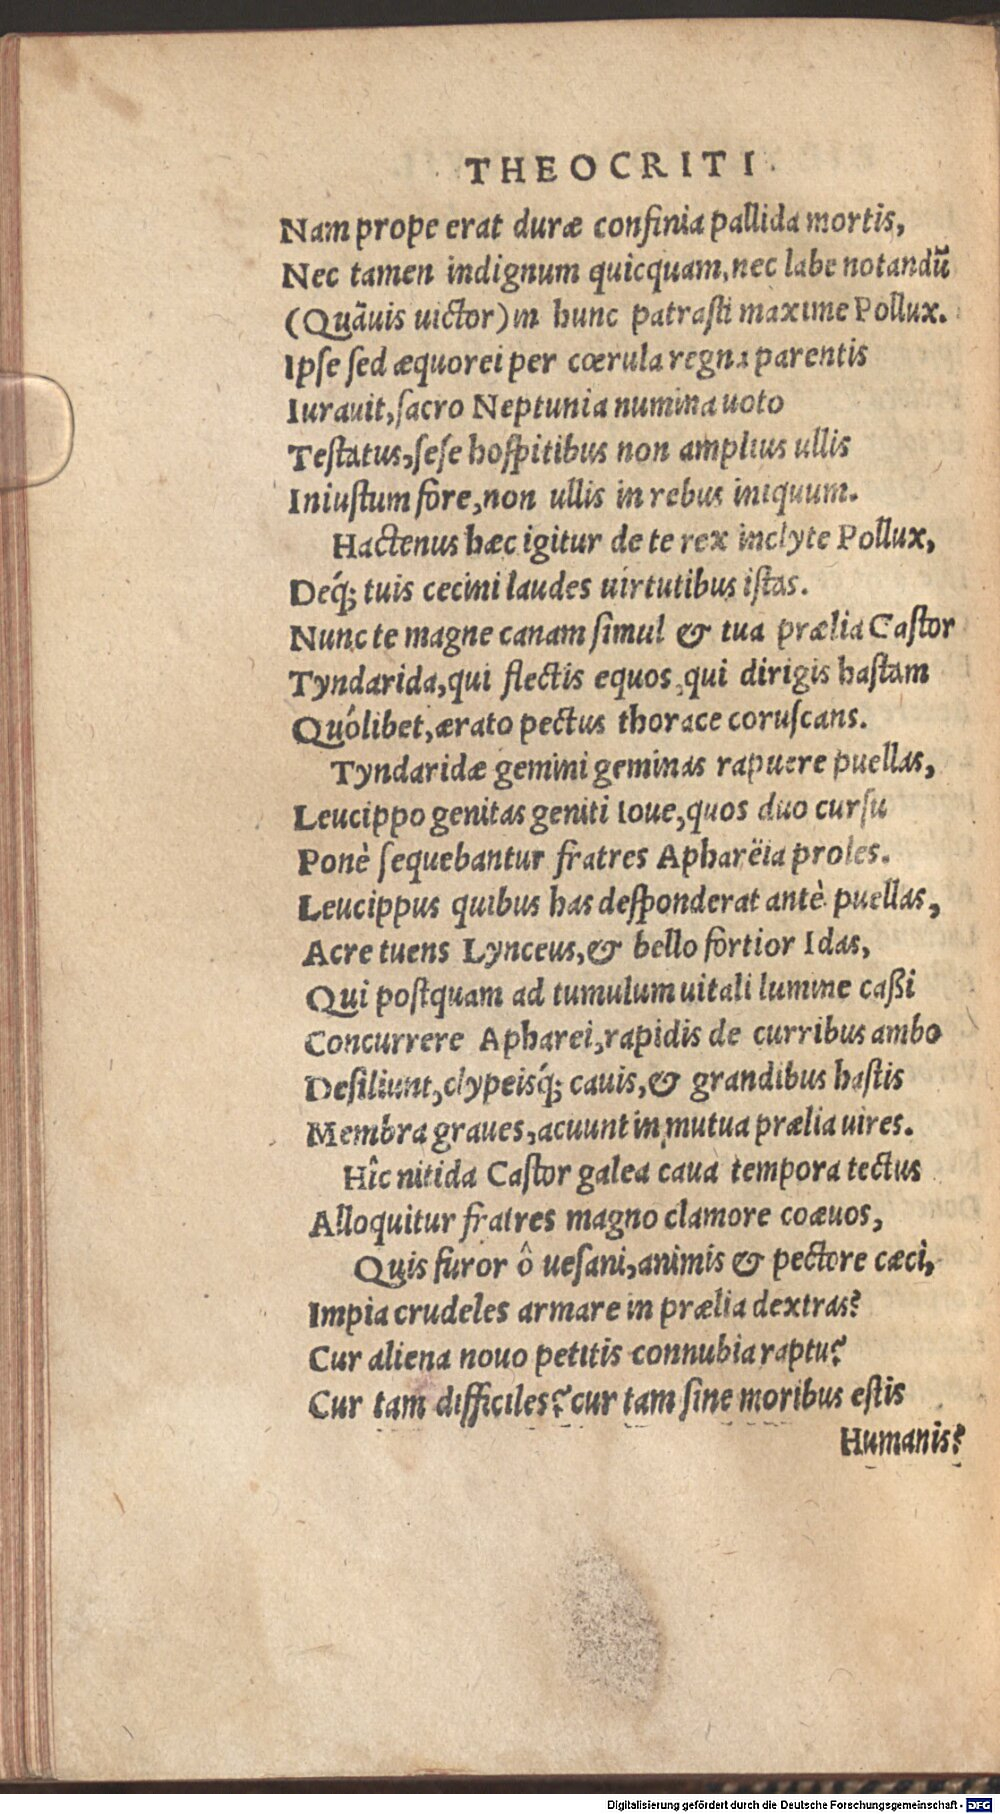 THEOCRITI
Nam prope erat duræ confinia pallida mortis,
Nec tamen indignum quicquam, nec labe notandũ
(Quãuis uictor) in hunc patrasti maxime Pollux.
Ipse sed æquorei per cœrula regna parentis
Iurauit, sacro Neptunia numina uoto
Testatus, sese hospitibus non amplius ullis
Iniustum fore, non ullis in rebus iniquum.
Hactenus hæc igitur de te rex inclyte Pollux,
Deq́; tuis cecini laudes uirtutibus istas.
Nunc te magne canam simul & tua prælia Castor
Tyndarida, qui flectis equos, qui dirigis hastam
Quólibet, ærato pectus thorace coruscans.
Tyndaridæ gemini geminas rapuere puellas,
Leucippo genitas geniti Ioue, quos duo cursu
Ponè sequebantur fratres Apharëia proles.
Leucippus quibus has desponderat antè puellas,
Acre tuens Lynceus, & bello fortior Idas,
Qui postquam ad tumulum uitali lumine caßi
Concurrere Apharei, rapidis de curribus ambo
Desiliunt, clypeisq́; cauis, & grandibus hastis
Membra graues, acuunt in mutua prælia uires.
Hîc nitida Castor galea caua tempora tectus
Alloquitur fratres magno clamore coæuos,
Quis furor ô uesani, animis & pectore cæci,
Impia crudeles armare in prælia dextras?
Cur aliena nouo petitis connubia raptu?
Cur tam difficiles? cur tam sine moribus estis
Humanis?
Digitalisierung gefördert durch die Deutsche Forschungsgemeinschaft - DFG